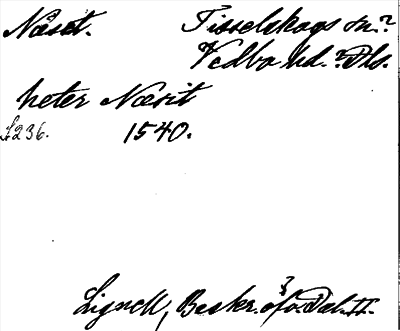 Näset. Tisselskogs sn.?
Vedbo hd. ? Dls.
heter Næsit
£236. 1540.
Lignell, Beskr. öfv. Dal. II.